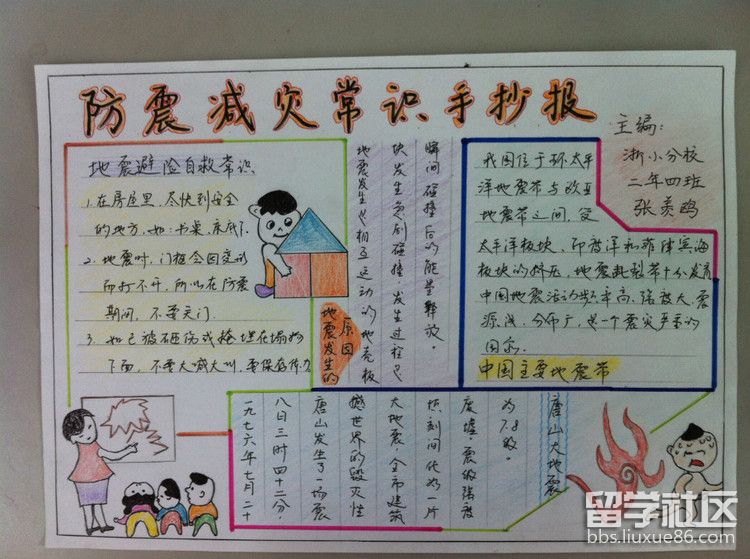 防震减灾常识手抄报
主编:
浙小分校
二年四班
张美鸥
地震避险自救常识
1.在房屋里,尽快到安全
的地方,如:书桌、床底下.
2.地震时,门框会因变形
而打不开,所以在防震
期间,不要关门.
3.如已被砸伤或掩埋在塌物
下面,不要大喊大叫,要保存体力
地震发生的
原因
地震发生是相互运动的地壳板
块发生急剧碰撞,发生过程是
瞬间碰撞后的能量释放.
我国位于环太平
洋地震带与欧亚
地震带之间,受
太平洋板块、印度洋和菲律宾海
板块的挤压,地震断裂带十分发育
中国地震活动频率高、强度大、震
源浅,分布广,是一个震灾严重的
国家.
中国主要地震带
唐山大地震
一九七六年七月二十
八日三时四十二分,
唐山发生了一场震
撼世界的毁灭性
大地震,全市建筑
顷刻间化为一片
废墟.震级强度
为7.8级.
留学社区
bbs.liuxue86.com